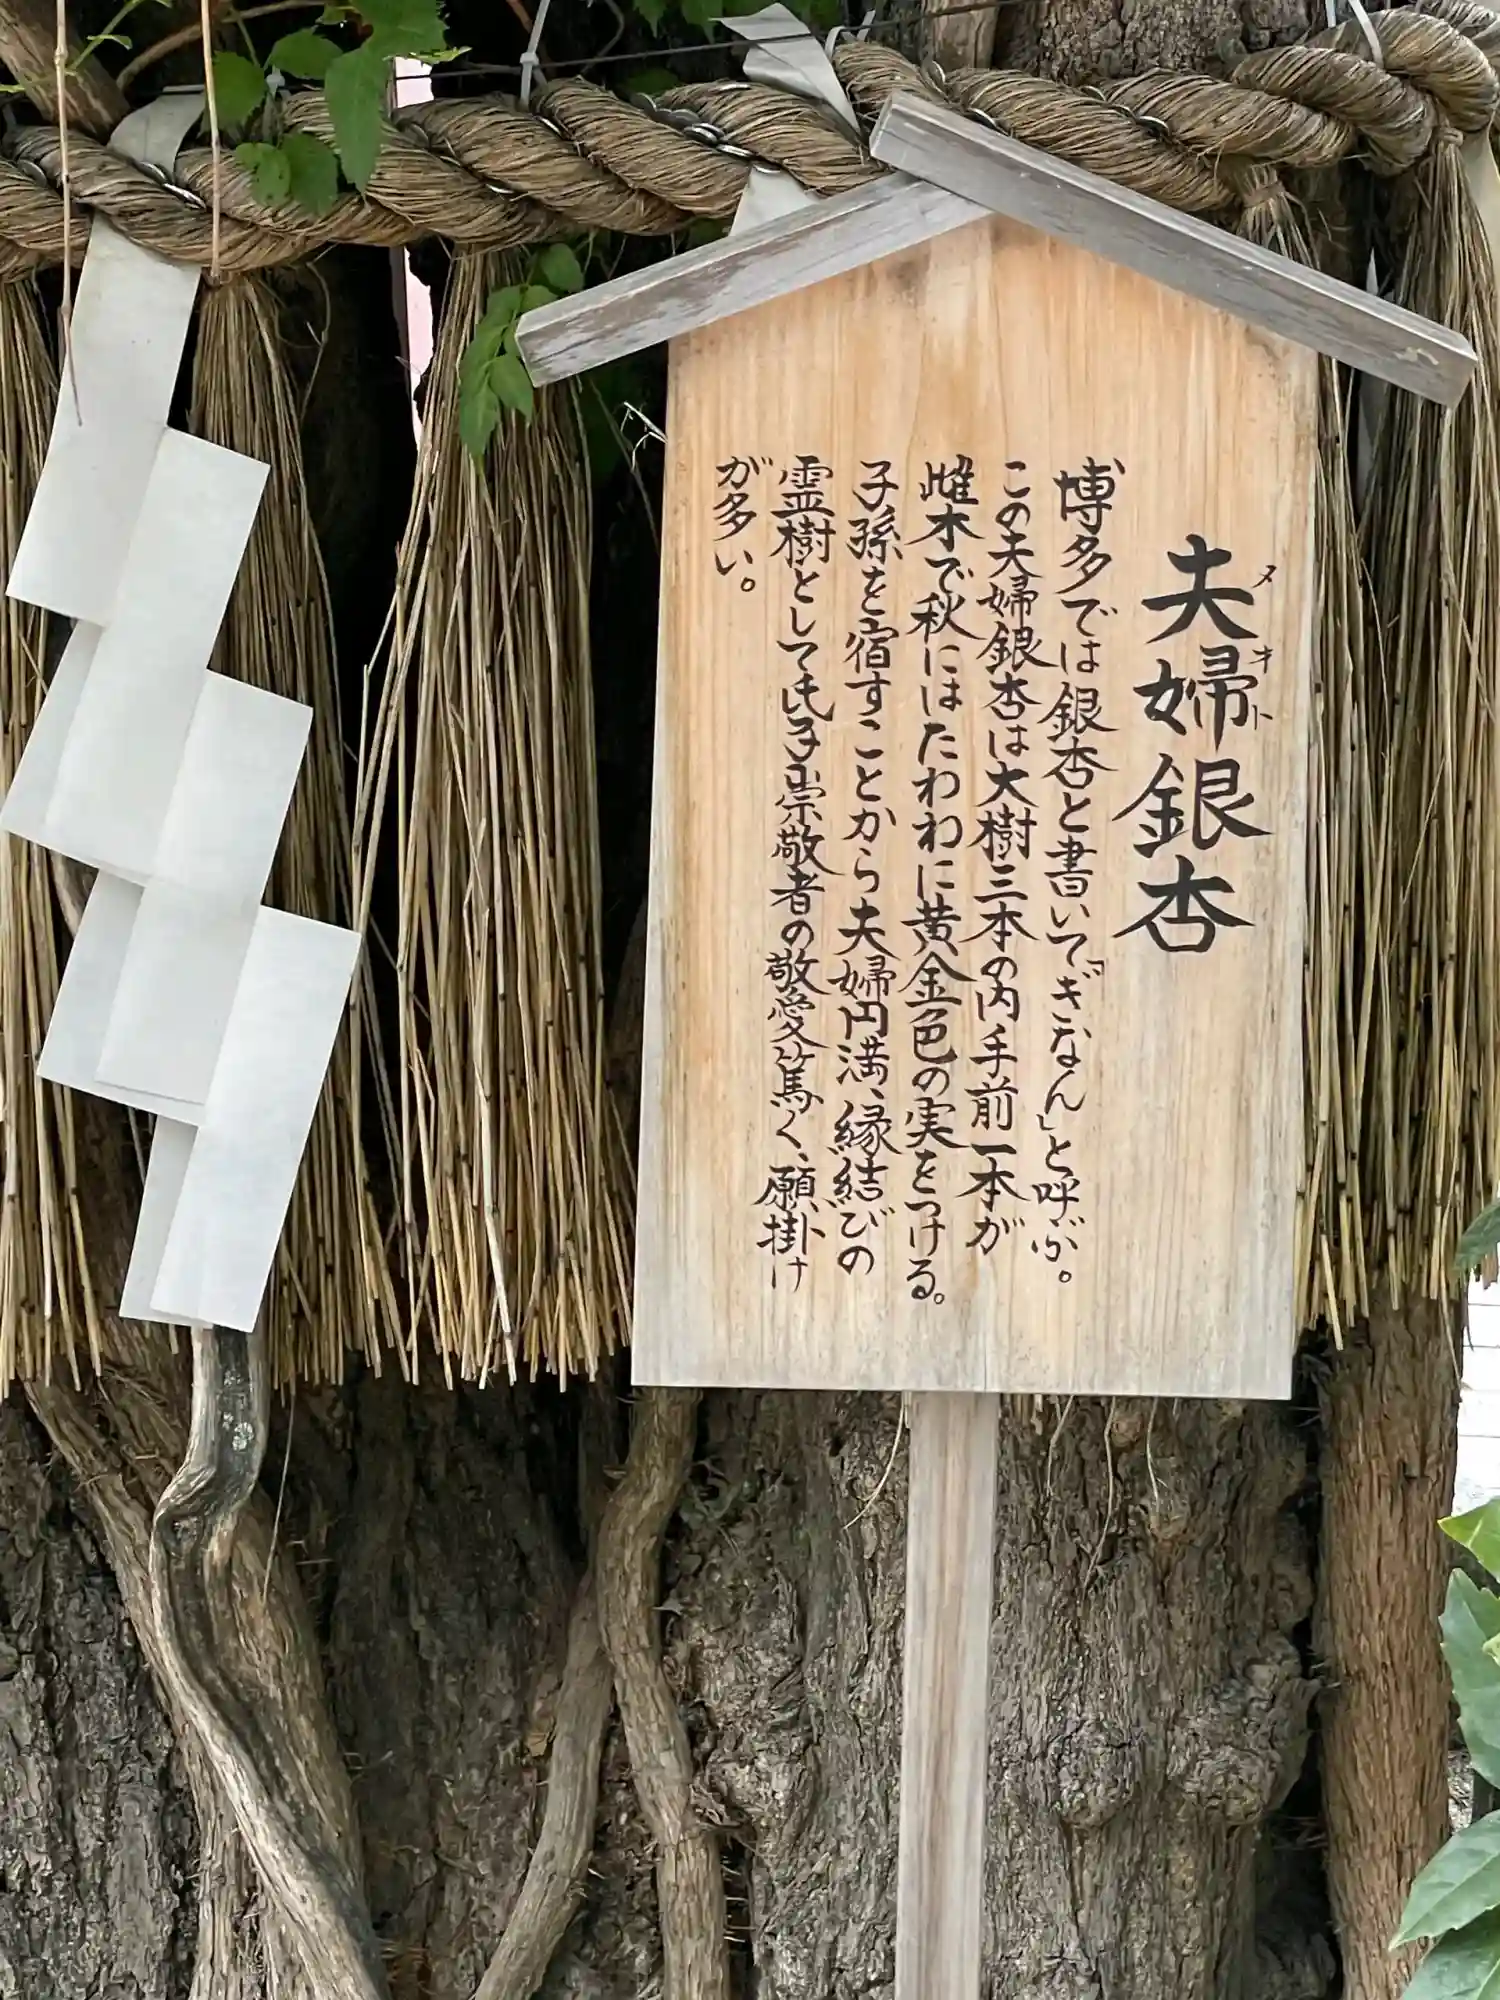 夫婦銀杏
メオト
博多では銀杏と書いて「ぎなん」と呼ぶ。
この夫婦銀杏は大樹三本の内手前一本が
雌木で秋にはたわわに黄金色の実をつける。
子孫を宿すことから夫婦円満、縁結びの
霊樹として氏子崇敬者の敬愛篤く、願掛け
が多い。